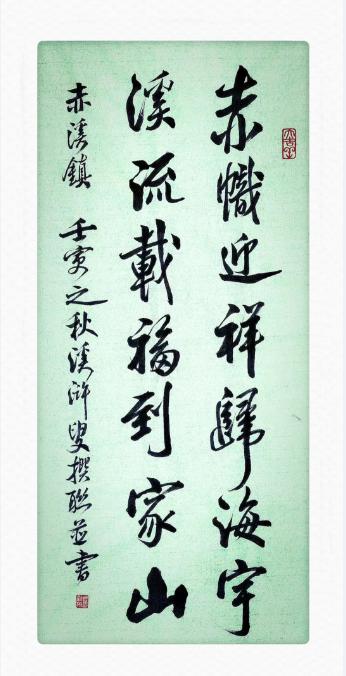 赤幟迎祥歸海宇
溪流載福到家山
赤溪鎮 壬寅之秋溪滸叟撰聯並書